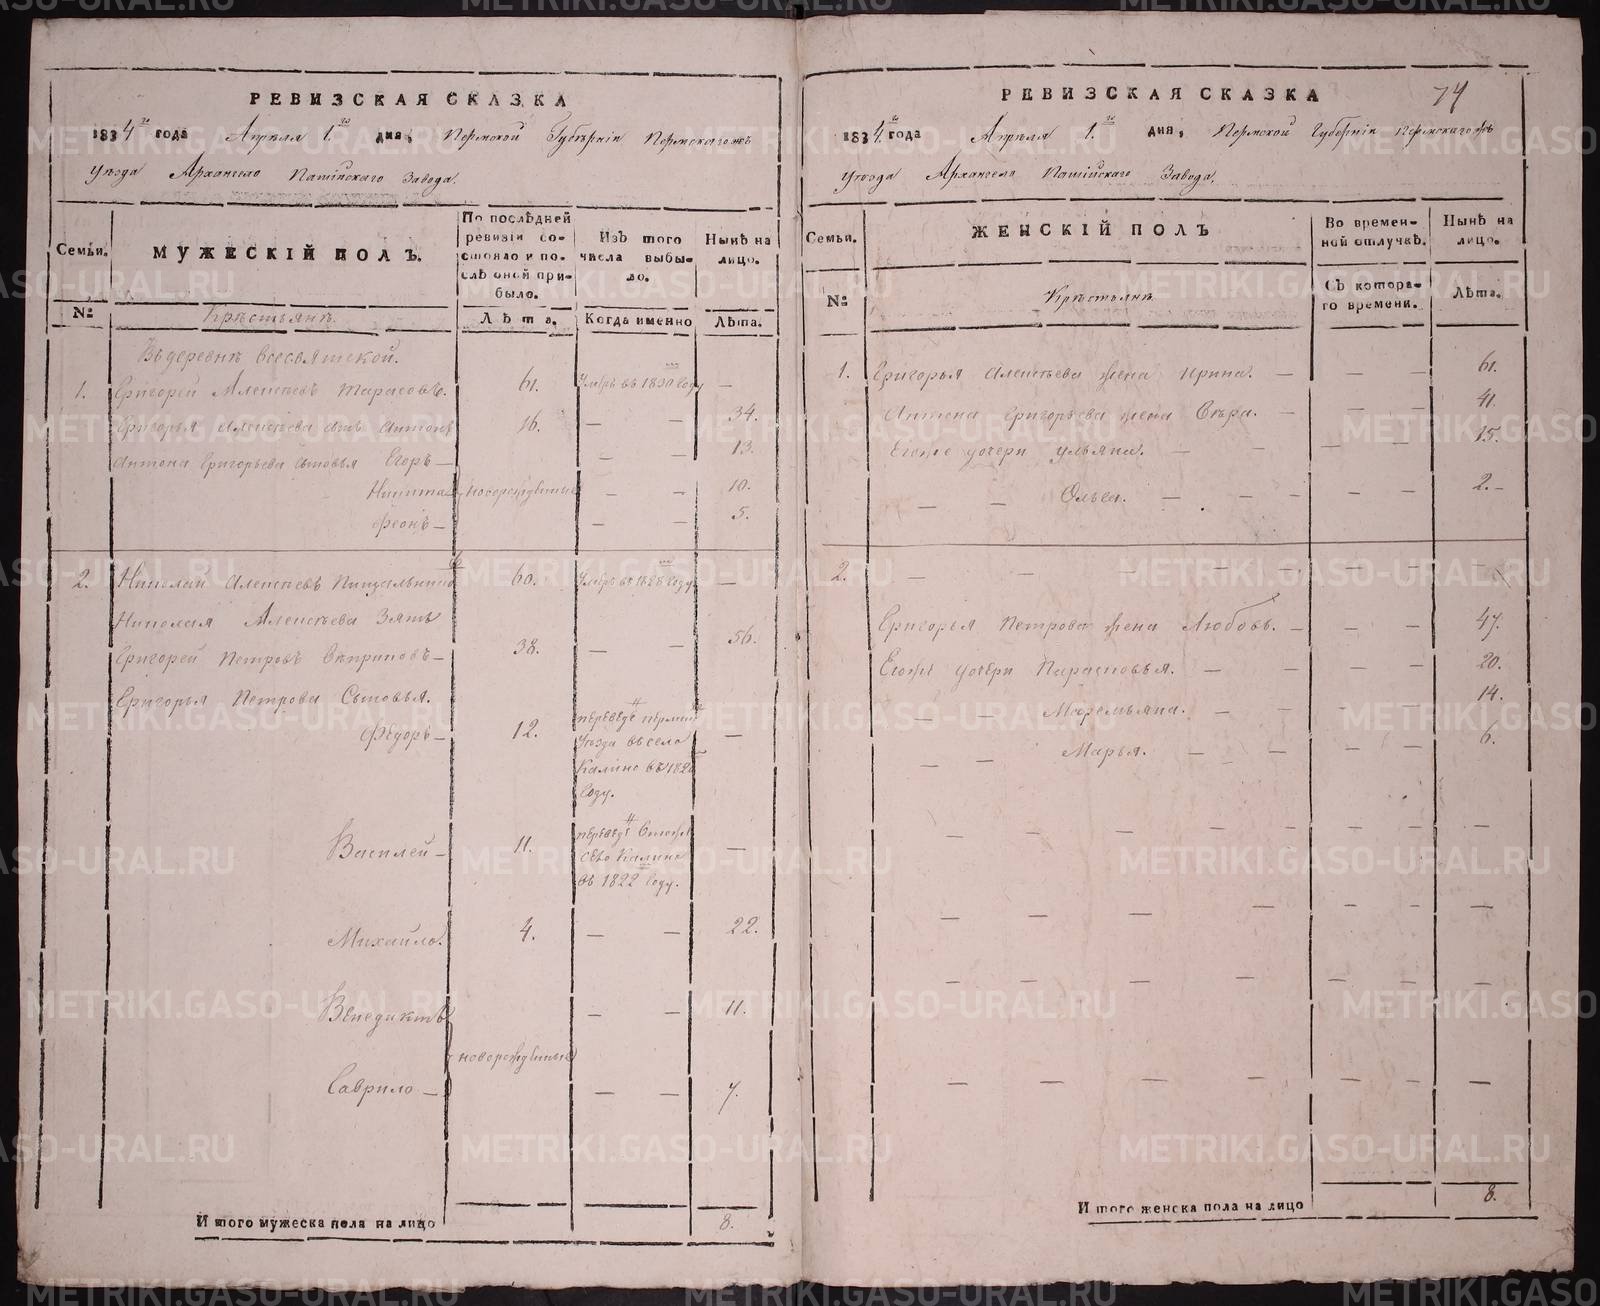 РЕВИЗСКАЯ СКАЗКА
1834 года Апреля 1 дня, Пермской Губернiи Пермскаго
уезда Архангело Пашiйскаго завода.
Семьи.
МУЖЕСКIЙ ПОЛЪ.
По послѣдней ревизiи состояло и послѣ оной прибыло.
Изъ того числа выбыло.
Нынѣ на лицо.
№
Крестьяне.
Лѣта.
Когда именно
Лѣта.
Въ деревне Всесвятской.
1. Григорей Алексеевъ Тарасовъ. 61. Умеръ въ 1830 году —
Григорья Алексеева сынъ Антонъ 16. — — 34.
Антона Григорьева сыновья Егоръ — — — 13.
Никита новорожденные — — 10.
Феонъ — — — 5.
2. Николай Алексеевъ 60. Умеръ въ 1828 году —
Николая Алексеева Зять
Григорей Петровъ — 38. — — 56.
Григорья Петрова Сыновья.
Федоръ — 12. переведенъ
уезда въ село
Калино въ
году. —
Василей — 11. переведенъ
село Калино
въ 1822 году. —
Михайло. 4. — — 22.
Венедиктъ — — 11.
новорожденные
Гаврило — — — 7.
И того мужеска пола на лицо 8.
74
РЕВИЗСКАЯ СКАЗКА
1834 года Апреля 1 дня, Пермской Губернiи Пермскаго
уезда Архангело Пашiйскаго завода.
Семьи.
ЖЕНСКIЙ ПОЛЪ
Во временной отлучкѣ.
Нынѣ на лицо.
№
Крестьяне.
Съ котораго времени.
Лѣта.
1. Григорья Алексеева жена Ирина. — — — 61.
Антона Григорьева жена Вера. — — — 41.
Его же дочери Ульяна. — — — — — 15.
— — Ольга. — — — — — 2.
2. — — — — — — — —
Григорья Петрова жена Любовь. — — — 47.
Его же дочери Парасковья. — — — — 20.
— — Маремьяна. — — — — 14.
— — Марья. — — — — 6.
И того женска пола на лицо 8.
METRIKI.GASO-URAL.RU